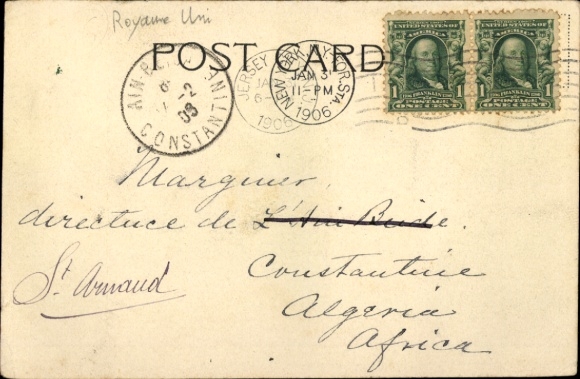 Royaume Uni
POST CARD
JERSEY
JA
6-
1906
NEW YORK, N.Y. FOR. STA.
JAN 3
11-PM
1906
UNITED STATES OF AMERICA
FRANKLIN
POSTAGE
1 ONE CENT 1
UNITED STATES OF AMERICA
FRANKLIN
POSTAGE
1 ONE CENT 1
AIN-B
CONSTANTINE
6
-2
Marguier,
directrice de L'Ain Beide.
St Arnaud
Constantine
Algeria
Africa